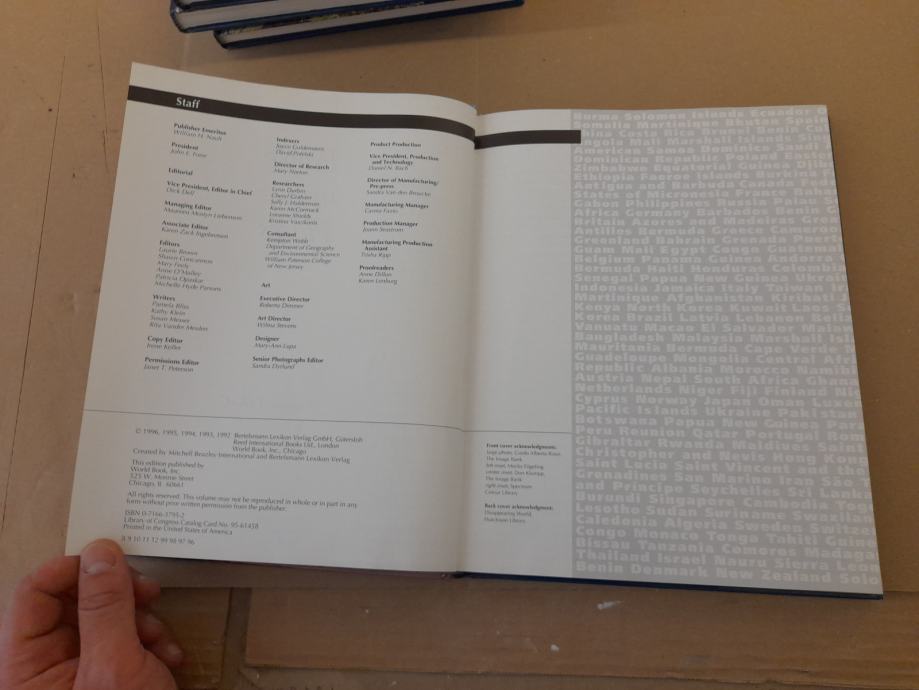 Staff
Publisher Emeritus
William H. Nault
President
John E.
Editorial
Vice President, Editor in Chief
Dick Dell
Managing Editor
Maureen Mostyn Liebenson
Associate Editor
Karen Zack Ingebretsen
Editors
Laurie Brown
Shawn
Mary Feely
Anne O'Malley
Patricia
Michelle Hyde Parsons
Writers
Pamela Bliss
Kathy Klein
Susan Messer
Rita Vander Meulen
Copy Editor
Irene Keller
Permissions Editor
Janet T. Peterson
Indexers
David
Director of Research
Mary Norton
Researchers
Lynn Durbin
Cheryl Graham
Sally J.
Karen McCormack
Loranne Shields
Kristina Vaicikonis
Consultant
Kempton Webb
Department of Geography
and Environmental Science
William Paterson College
of New Jersey
Art
Executive Director
Roberta Dimmer
Art Director
Wilma Stevens
Designer
Mary-Ann Lupa
Senior Photographs Editor
Sandra Dyrlund
Product Production
Vice President, Production
and Technology
Daniel N. Bach
Director of Manufacturing/
Pre-press
Sandra Van den Broucke
Manufacturing Manager
Carma Fazio
Production Manager
Joann Seastrom
Manufacturing Production
Assistant
Trisha Ripp
Proofreaders
Anne Dillon
Karen Lenburg
© 1996, 1995, 1994, 1993, 1992 Bertelsmann Lexikon Verlag GmbH, Gütersloh
Reed International Books Ltd., London
World Book, Inc., Chicago
Created by Mitchell Beazley International and Bertelsmann Lexikon Verlag
This edition published by
World Book, Inc.
525 W. Monroe Street
Chicago, IL 60661
All rights reserved. This volume may not be reproduced in whole or in part in any
form without prior written permission from the publisher.
ISBN 0-7166-3795-2
Library of Congress Catalog Card No. 95-61458
Printed in the United States of America
8 9 10 11 12 99 98 97 96
Front cover acknowledgments:
Large photo, Guido Alberto Rossi,
The Image Bank
left inset,
center inset, Don Klumpp,
The Image Bank
right inset, Spectrum
Colour Library
Back cover acknowledgment:
Disappearing World,
Hutchison Library
Burma Solomon Islands Ecuador
Somalia Martinique Bhutan
China Costa Rica Brunei Benin
Angola Mali Marshall Islands
American Samoa Dominica Saudi
Dominican Republic Poland
Zimbabwe Equatorial Guinea Djibou
Ethiopia Faeroe Islands Burkina
Antigua and Barbuda Canada
States of Micronesia France
Gabon Philippines India Palau
Africa Germany Barbados Benin
Britain Azores and Madeiras Gre
Antilles Bermuda Greece Cameroo
Greenland Bahrain Grenada Puert
Guam Mali Egypt Cuba Guatemal
Belgium Panama Gabon Andorra
Bermuda Haiti Honduras Colombia
Senegal Papua New Guinea
Indonesia Jamaica Italy Taiwan
Martinique Afghanistan Kiribati
Kenya North Korea Kuwait Laos
Korea Brazil Latvia Lebanon Beliz
Vanuatu Macao El Salvador Malaw
Bangladesh Malaysia Marshall Isl
Mauritania Bermuda Cape Verde
Guadeloupe Monaco Central Afri
Republic Albania Morocco Namibi
Austria Nepal South Africa Ghana
Netherlands Niger Fiji Finland
Cyprus Norway Japan Oman Luxem
Pacific Islands Ukraine Pakistan
Botswana Papua New Guinea
Peru Reunion Qatar Portugal Rom
Gibraltar Russia
Christopher and Nevis
Saint Lucia Saint Vincent and the
Grenadines San Marino Iran São T
and Príncipe Seychelles Sri Lanka
Burundi Singapore
Lesotho Sudan Suriname
Caledonia Swaziland Sweden
Congo Monaco Tonga Tahiti
Bissau Tanzania Comoros Madaga
Thailand Israel Nauru Sierra Leon
Benin Denmark New Zealand Solo